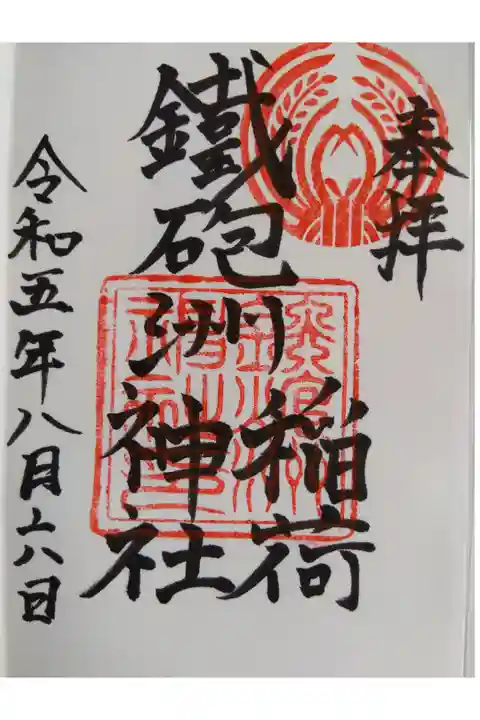 奉拝
鐵砲洲稲荷
神社
令和五年八月十六日